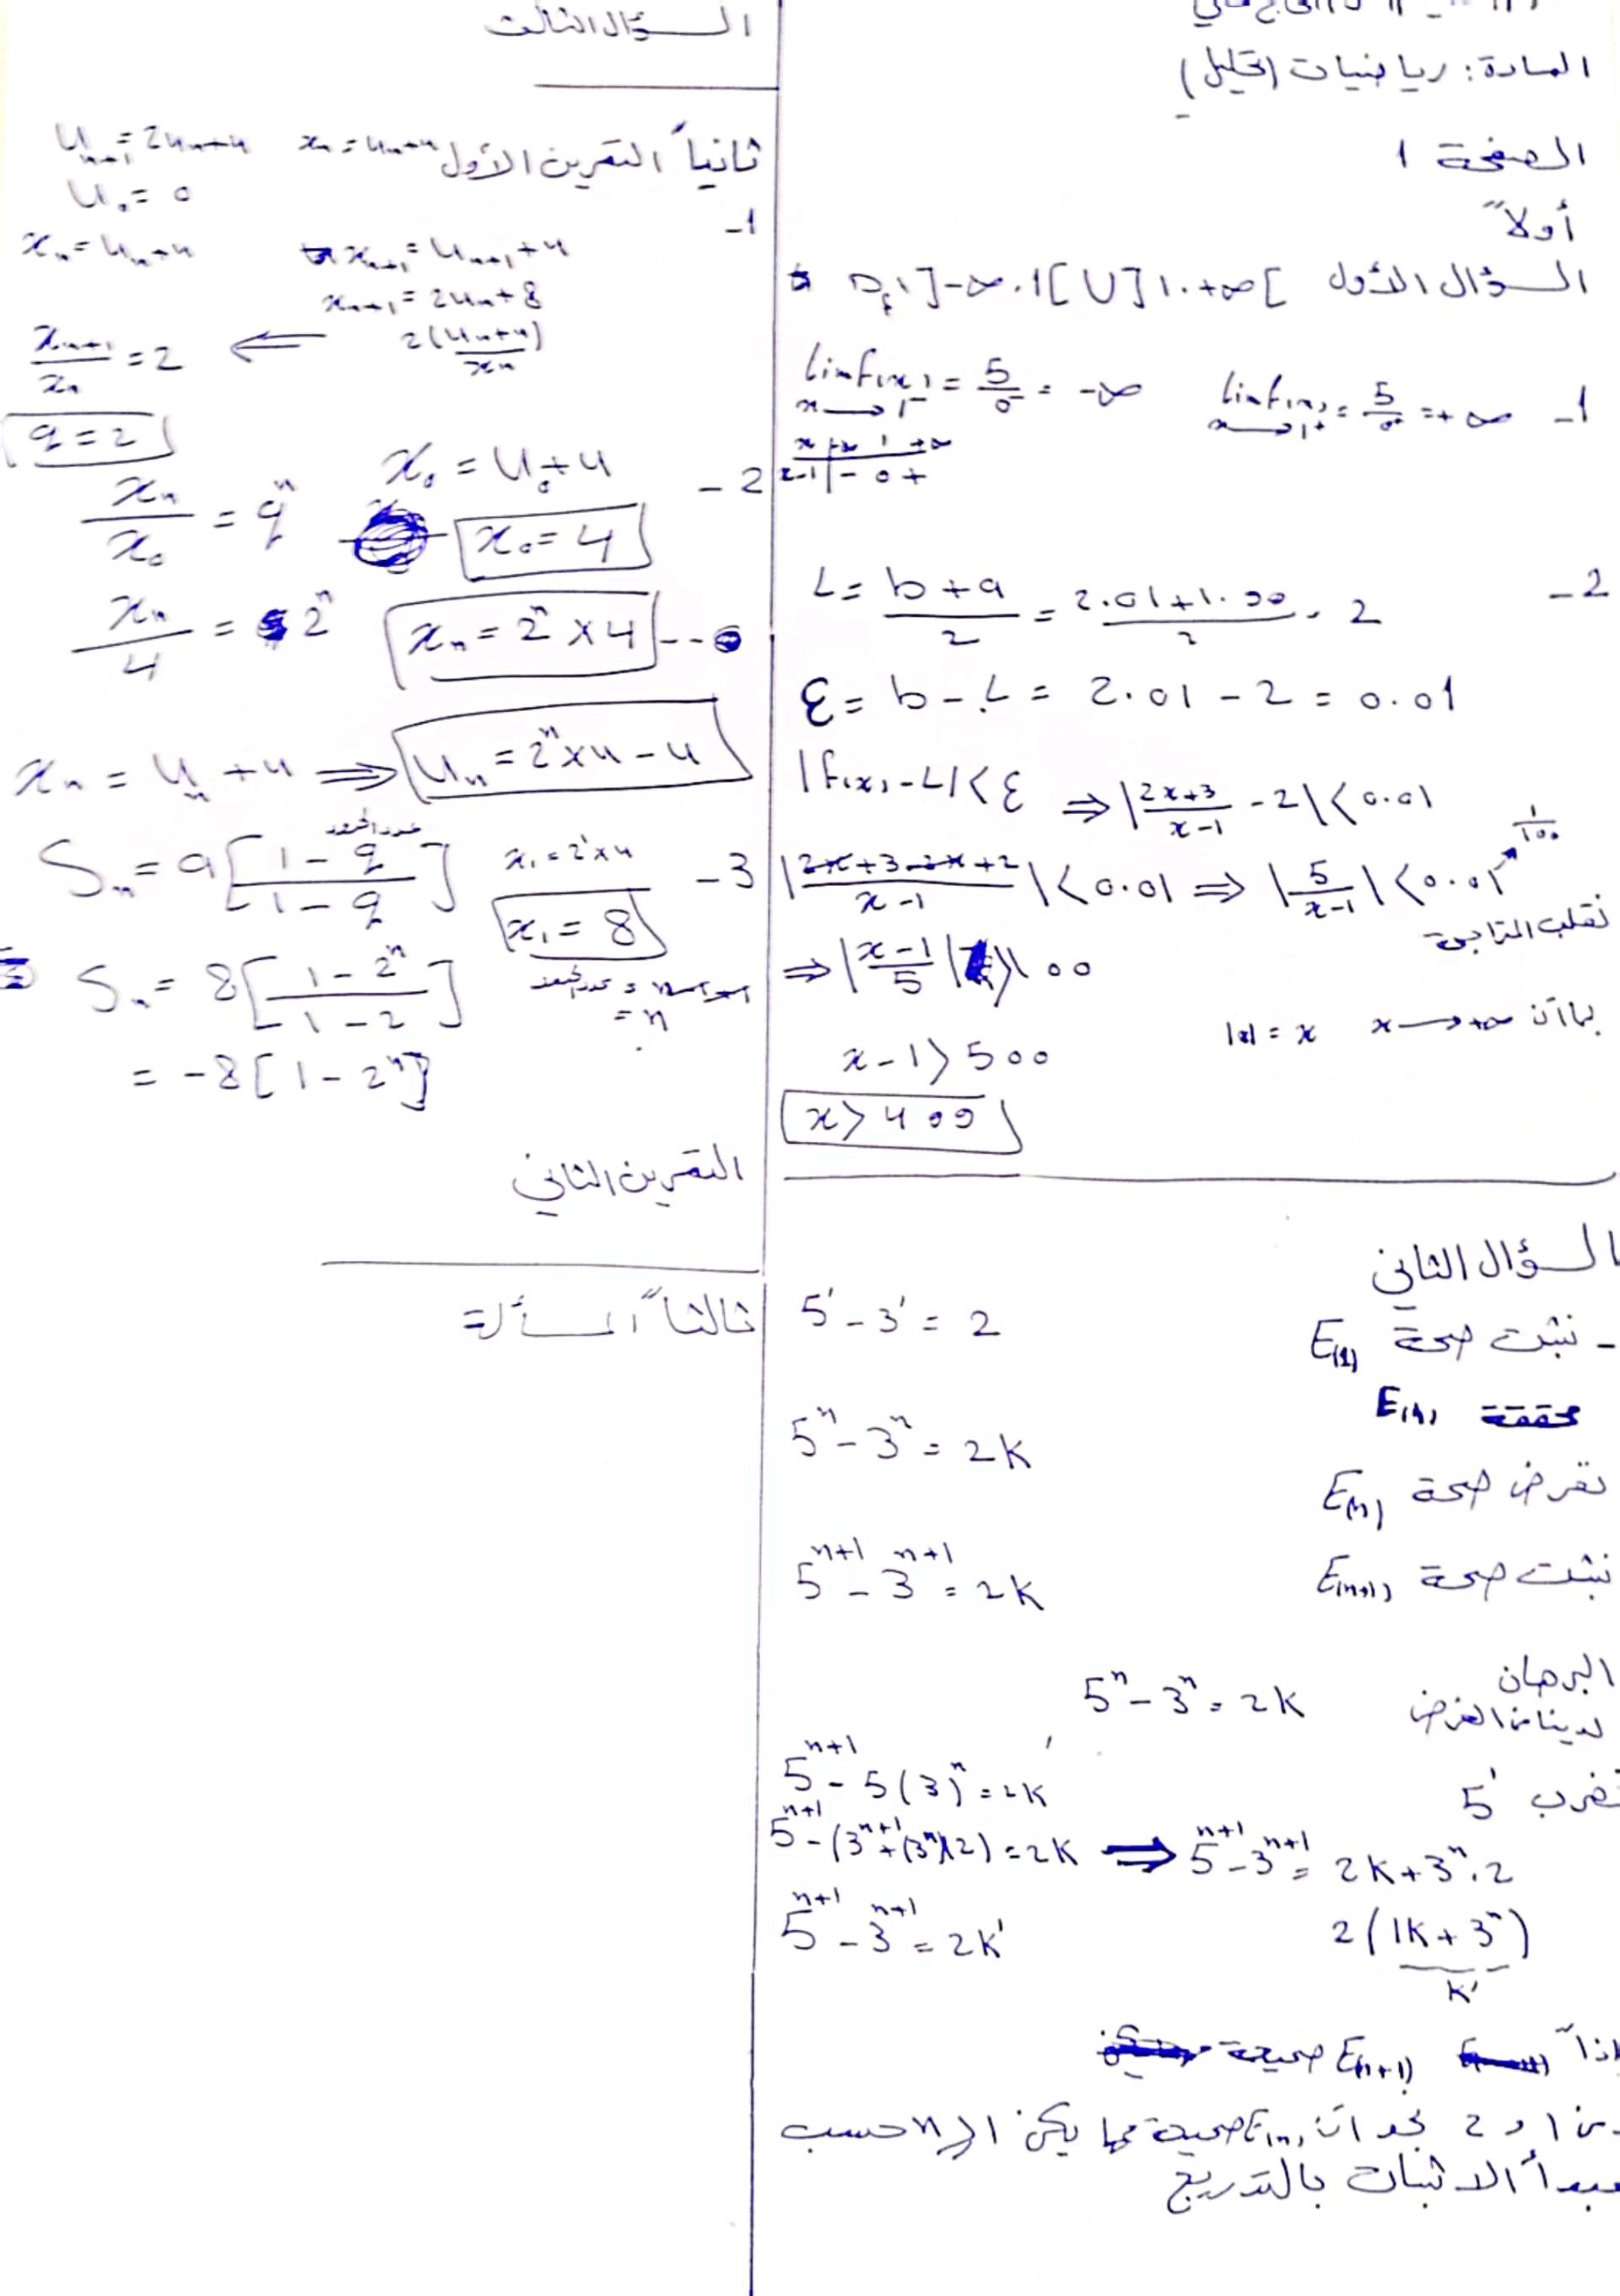 المادة: رياضيات (تحليل)
الصفحة 1
أولاً
السؤال الأول D_f ]-∞.1[ U ]1.+∞[
-1 lim f(x) = 5/0⁺ = +∞ lim f(x) = 5/0⁻ = -∞
x→1⁺ x→1⁻
x -∞ 1 +∞
x-1 | - 0 +
-2 L = (b+a)/2 = (2.01+1.99)/2 = 2
ε = b - L = 2.01 - 2 = 0.01
|f(x) - L| < ε ⇒ |(2x+3)/(x-1) - 2| < 0.01
1/100
|(2x+3-2x+2)/(x-1)| < 0.01 ⇒ |5/(x-1)| < 0.01
نقلب المتراجحة
⇒ |(x-1)/5| > 100
بما أن x→+∞ |x| = x
x-1 > 500
x > 499
السؤال الثاني
- نثبت صحة E(1) 5¹ - 3¹ = 2
محققة E(1)
نفرض صحة E(n) 5ⁿ - 3ⁿ = 2K
نثبت صحة E(n+1) 5ⁿ⁺¹ - 3ⁿ⁺¹ = 2K
البرهان
لدينا من الفرض 5ⁿ - 3ⁿ = 2K
نضرب 5¹ 5ⁿ⁺¹ - 5(3)ⁿ = 2K
5ⁿ⁺¹ - (3ⁿ⁺¹ + (3ⁿ)(2)) = 2K ⇒ 5ⁿ⁺¹ - 3ⁿ⁺¹ = 2K + 3ⁿ.2
2(1K + 3ⁿ)
K'
5ⁿ⁺¹ - 3ⁿ⁺¹ = 2K'
إذاً E(n+1) صحيحة
من 1 و 2 نجد أن E(n) صحيحة مهما يكن الـ n حسب
مبدأ الاثبات بالتدريج
السؤال الثالث
ثانياً التمرين الأول xₙ = uₙ+4 uₙ₊₁ = 2uₙ+4
u₀ = 0
-1
xₙ = uₙ+4 xₙ₊₁ = uₙ₊₁+4
xₙ₊₁ = 2uₙ+8
2(uₙ+4)
xₙ
⇐ xₙ₊₁/xₙ = 2
q = 2
-2 x₀ = u₀+4
xₙ/x₀ = qⁿ x₀ = 4
xₙ/4 = 2ⁿ xₙ = 2ⁿ×4
xₙ = uₙ+4 ⇒ uₙ = 2ⁿ×4-4
-3 x₁ = 2¹×4
x₁ = 8
عدد الحدود
Sₙ = a[(1-q)/(1-q)]
عدد الحدود = n-1+1
= n
Sₙ = 8[(1-2ⁿ)/(1-2)]
= -8[1-2ⁿ]
التمرين الثاني
ثالثاً المسألة